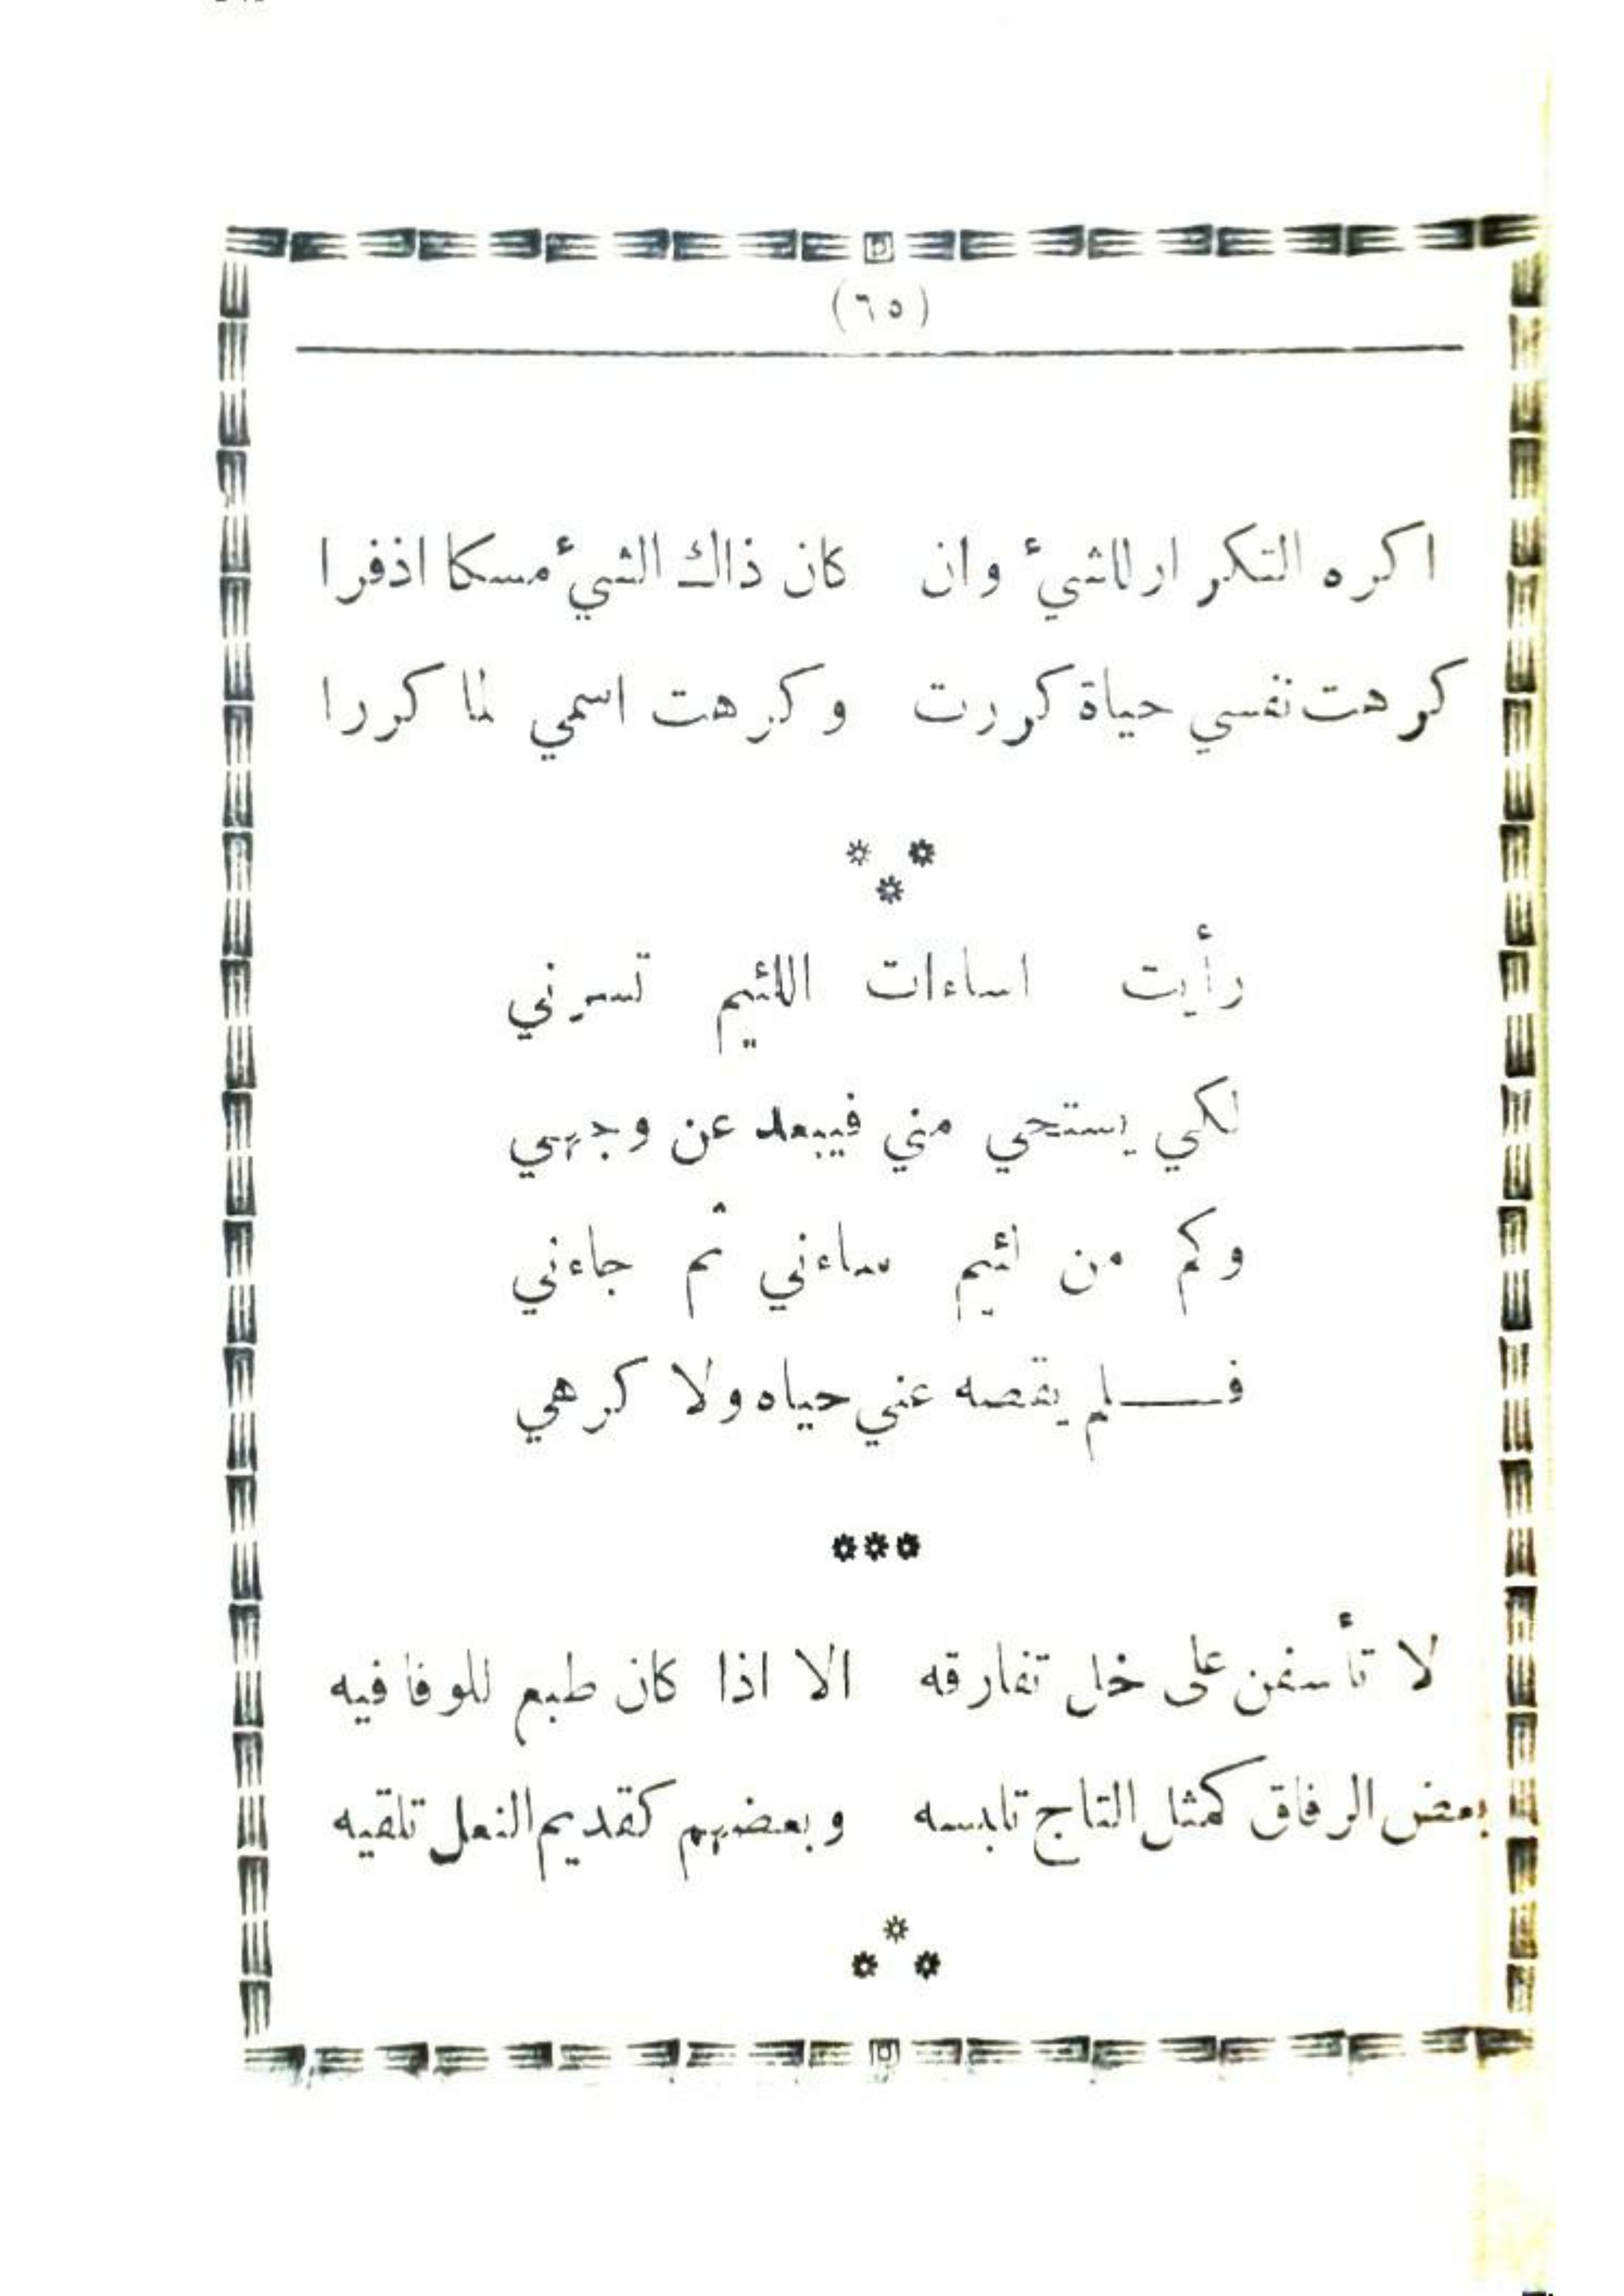 (٦٥)
اكره التكرار للشيء وان كان ذاك الشيء مسكا اذفرا
كرهت نفسي حياة كررت وكرهت اسمي لما كررا
رأيت اساءات اللئيم تسرني
لكي يستحي مني فيبعد عن وجهي
وكم من لئيم ساءني ثم جاءني
فـــلم يقصه عني حياه ولا كرهي
***
لا تأسفن على خل تفارقه الا اذا كان طبع للوفا فيه
بعض الرفاق كمثل التاج تلبسه وبعضهم كقديم النعل تلقيه